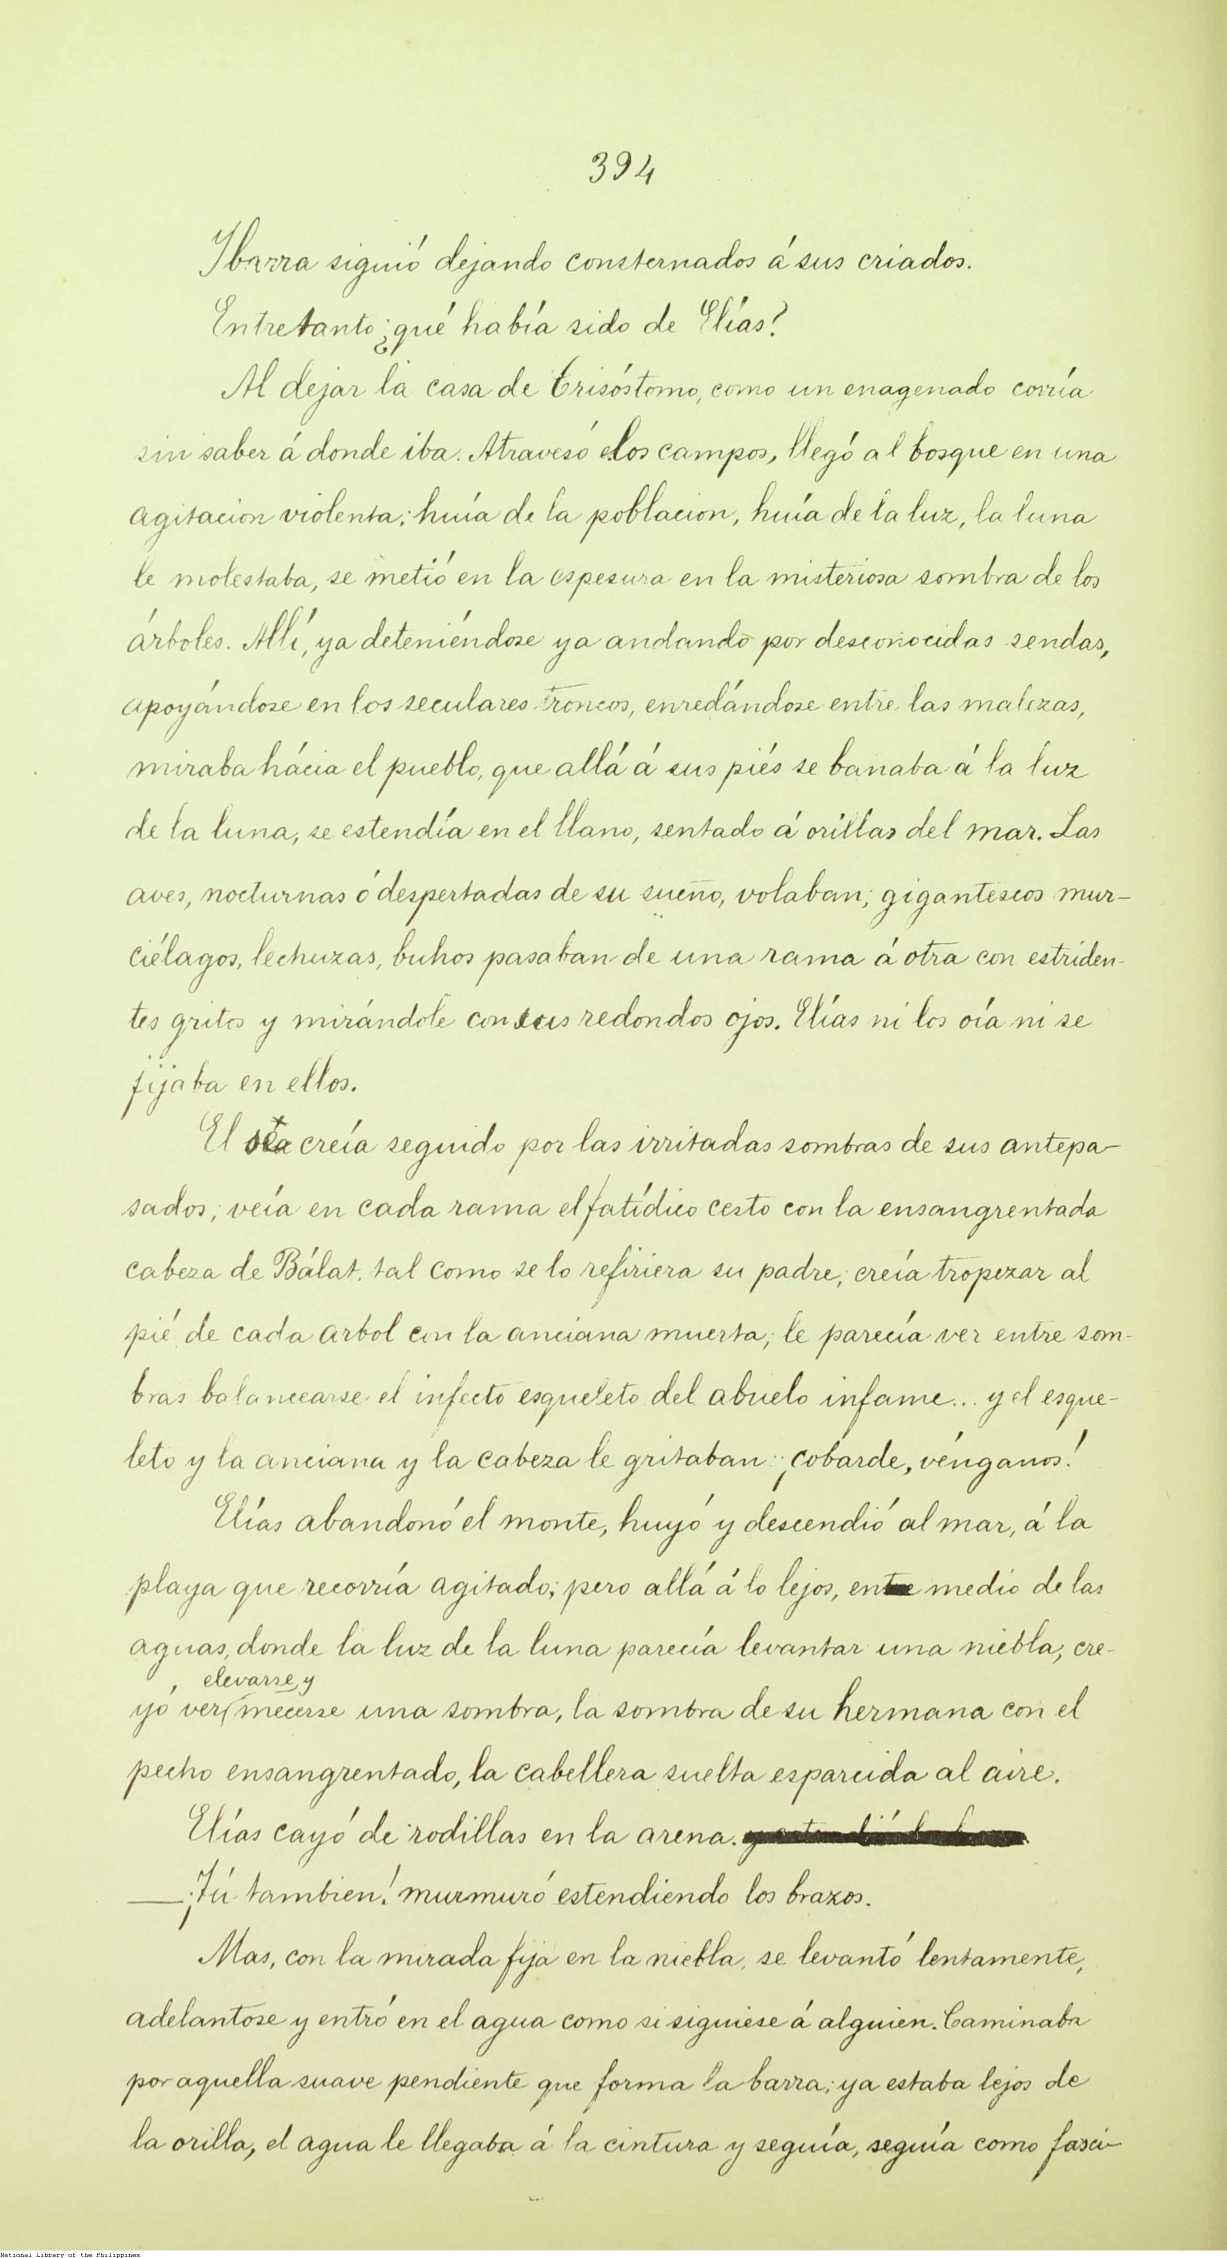 394
Ibarra siguió dejando consternados á sus criados.
Entretanto ¿qué había sido de Elías?
Al dejar la casa de Crisóstomo, como un enagenado corría
sin saber á donde iba. Atravesó los campos, llegó al bosque en una
agitacion violenta; huía de la poblacion, huía de la luz, la luna
le molestaba, se metió en la espesura en la misteriosa sombra de los
árboles. Allí, ya deteniéndose ya andando por desconocidas sendas,
apoyándose en los seculares troncos, enredándose entre las malezas,
miraba hácia el pueblo, que allá á sus piés se banaba á la luz
de la luna, se estendía en el llano, sentado á orillas del mar. Las
aves, nocturnas ó despertadas de su sueño, volaban; gigantescos mur-
ciélagos, lechuzas, buhos pasaban de una rama á otra con estriden-
tes gritos y mirándole con sus redondos ojos. Elías ni los oía ni se
fijaba en ellos.
El se creía seguido por las irritadas sombras de sus antepa-
sados; veía en cada rama el fatídico cesto con la ensangrentada
cabeza de Bálat. tal como se lo refiriera su padre; creía tropezar al
pié de cada arbol con la anciana muerta; le parecía ver entre som-
bras balancearse el infecto esqueleto del abuelo infame... y el esque-
leto y la anciana y la cabeza le gritaban: ¡cobarde, vénganos!
Elías abandonó el monte, huyó y descendió al mar, á la
playa que recorría agitado; pero allá á lo lejos, en medio de las
aguas, donde la luz de la luna parecía levantar una niebla, cre-
elevarse y
yó ver mecerse una sombra, la sombra de su hermana con el
pecho ensangrentado, la cabellera suelta esparcida al aire.
Elías cayó de rodillas en la arena.
—¡Tú tambien! murmuró estendiendo los brazos.
Mas, con la mirada fija en la niebla, se levantó lentamente,
adelantose y entró en el agua como si siguiese á alguien. Caminaba
por aquella suave pendiente que forma la barra; ya estaba lejos de
la orilla, el agua le llegaba á la cintura y seguía, seguía como fasci-
National Library of the Philippines